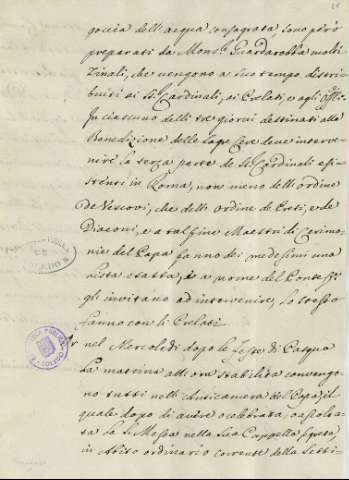 goccia dell'acqua consagrata, sono però
preparati da Mons.r Guardarobba molti
Zinali, che vengono a suo tempo distri-
buiti ai SS. Cardinali, ai Prelati, e agli
In ciascuno delli tre giorni destinati alla
Benedizione delle sagre Cere deve interve-
nire la terza parte de SS. Cardinali esi-
stenti in Roma, non meno dell'ordine
de Vescovi, che dell'ordine de Preti, e de
Diaconi, e a tal fine Maestri di Cerimo-
nie del Papa fanno dei medesimi una
nota esatta, e a nome del Pontefice
gli invitano ad intervenire, lo stesso
fanno con li Prelati
nel Mercoledì dopo le feste di Pasqua
la mattina all'ora stabilita convengo-
no tutti nell'Anticamera del Papa, il
quale dopo di avere celebrata, o ascolta-
ta la S. Messa nella sua Cappella segreta,
in Abito ordinario corrente della Setti-